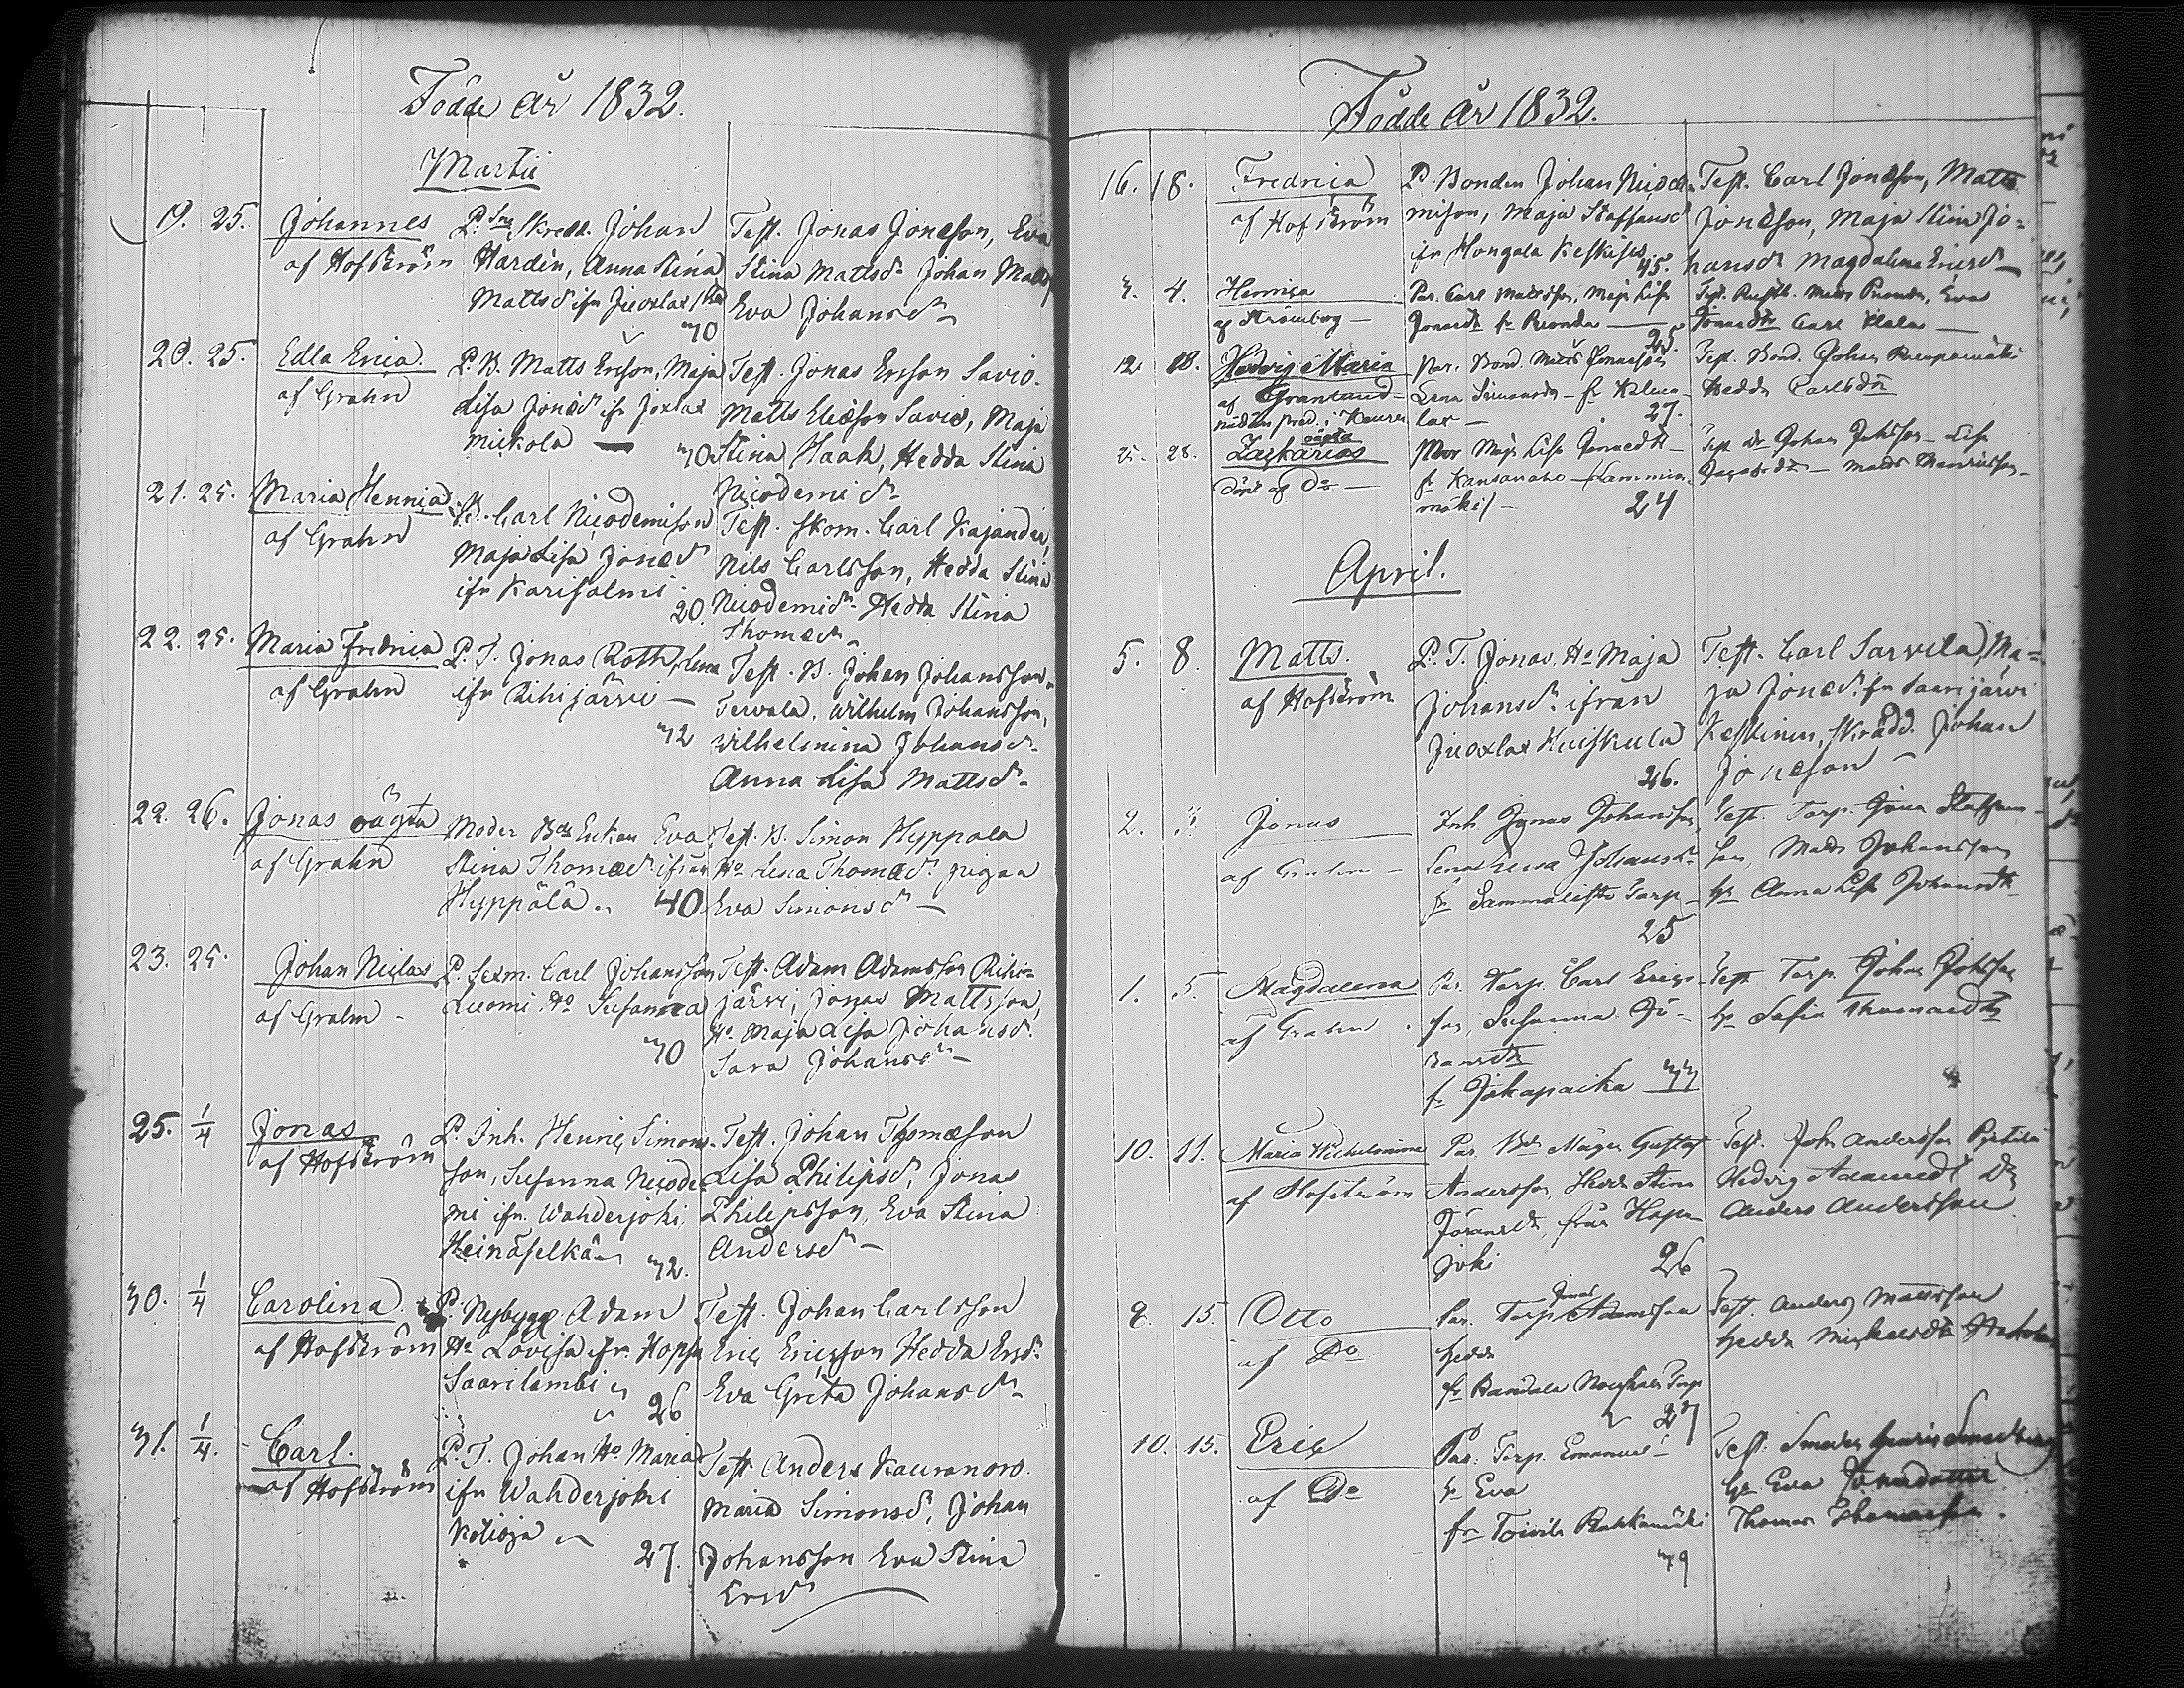 Födde år 1832.
Martii
19. 25. Johannes
af Hofström
P. Skredd. Johan
Hardin, Anna Stina
Mattsdr ifr Juoxlax
30
Test. Jonas Jonæson, Eva
Stina Mattsdr Johan Matts
Eva Johansdr
20. 25. Edla Erica
af Grahn
P. B. Matts Ericson, Maja
Lisa Jonædr ifr Joxlax
Mickola
30
Test. Jonas Ericson Savio.
Matts Ericson Savio, Maja
Stina Haak, Hedda Stina
Nicodemidr
21. 25. Maria Henrica
af Grahn
B. Carl Nicodemison
Maja Lisa Jonædr
ifr Karisalmi
20.
Test. Skom. Carl Kajander,
Nils Carlsson, Hedda Stina
Nicodemidr Hedda Stina
Thomædr
22. 25. Maria Fredrica
af Grahn
P. T. Jonas Roth, Lena
ifr Rihijärvi
32
Test. B. Johan Johansson
Tervala, Wilhelm Johansson,
Wilhelmina Johansdr
Anna Lisa Mattsdr
22. 26. Jonas oägta
af Grahn
Moder Enkan Eva
Stina Thomædr ifrån
Hyppälä 40
Test. B. Simon Hyppälä
Ho Lena Thomædr pigan
Eva Simonsdr
23. 25. Johan Niclas
af Grahn
P. Sexm. Carl Johansson
Luomi Ho Susanna
30
Test. Adam Adamsson Rihi=
järvi, Jonas Mattsson,
Ho Maja Lisa Johansdr
Sara Johansdr
25. 1/4 Jonas
af Hofström
P. Inh. Henric Simons-
son, Susanna Nicode
mi ifr. Wahderjoki
Heinäselkä 32.
Test. Johan Thomæson
Lisa Philipsdr, Jonas
Philipsson, Eva Stina
Andersdr
30. 1/4 Carolina
af Hofström
P. Nybygg Adam
Ho Lovisa ifr. Hopsu
Saarilambi
26
Test. Johan Carlsson
Eric Ericsson Hedda Ersdr
Eva Greta Johansdr
31. 1/4. Carl.
af Hofström
P. T. Johan Ho Maria
ifr Wahderjoki
Kotioja
27.
Test Anders Kauranoro.
Maria Simonsdr, Johan
Johansson Eva Stina
Ersdr
Födde år 1832.
16. 18. Fredrica
af Hofström
P. Bonden Johan Nicode
mison, Maja Staffansdr
ifr Hongala Keskises
45.
Test. Carl Jonæson, Matts
Jonæson, Maja Stina Jo=
hansdr Magdalena Ericsdr
3. 4. Henrica
af Stromberg
Par. Carl Mattsson, Maja Lisa
Jonasdr fr Ruonda
25.
Test. Matts Ruonda, Eva
Jonasdtr Carl
12 18. Hedvig Maria
af Granlund
Par. Bond. Matts
Lena Simonsdr fr
lax 27.
Test. Bond. Johan
Hedda Carlsdtr
25. 28. Zackarias oägta
Döpt af Do
Mor Maja Lisa Jonasdtr
fr Kansanaho
mäki/ 24
Test Dr Johan Johsson Lisa
April.
5. 8. Matts.
af Hofström
P. T. Jonas Ho Maja
Johansdr ifrån
Juoxlax Huiskula
26.
Test. Carl Sarvela, Ma=
ja Jonædr fr Saarijärvi
Keskinen, Skrädd. Johan
Jonæson
2. 3. Jonas
af Grahn
Inh Jonas Johansson,
Lena Johansdr
fr Sammalisto Torp
25
Test. Torp.
son, Matts Johansson
Ho Anna Lisa Johansdtr
1. 5. Magdalena
af Grahn
Par. Torp. Carl Erics-
son, Susanna Jo-
hansdtr
fr Jokapaika 33
Test Torp. Johan Johsson
Ho Sofia Thomasdtr
10. 11. Maria Wilhelmina
af Hofström
Par. Gustaf
Andersson, Hedda Stina
Göransdtr, från Hapa
joki 26
Test. Joh. Andersson Pyttilä
Hedvig Adamsdtr
Anders Andersson
8. 15. Otto
af Do
Par. Torp. Jonas Adamsson
Hedda
fr Torp
27
Test. Anders Mattsson
Hedda Michelsdtr
10. 15. Eric
af Do
Par. Torp. Emanuel
Ho Eva
fr Toivila
39
Test. Smeden
Ho Eva Jonasdotter
Thomas Thomasson.